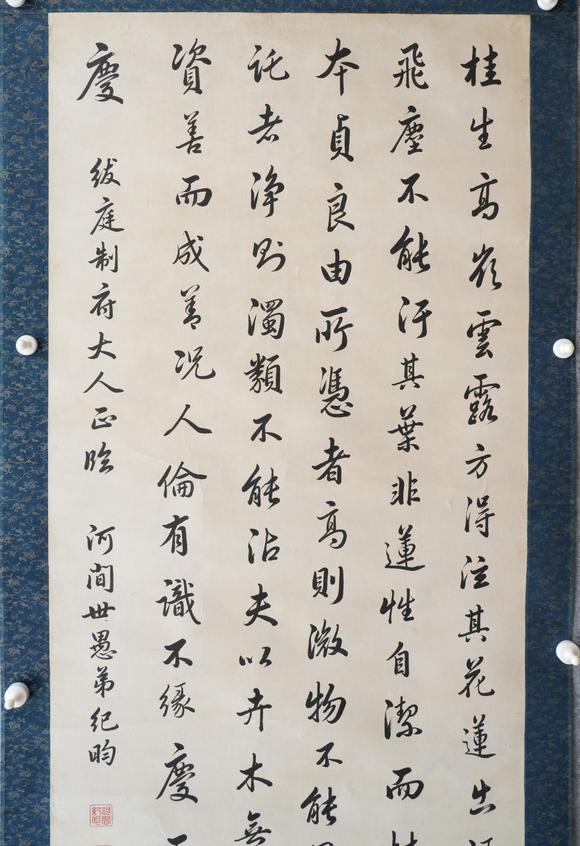 桂生高嶺雲露方得注其花蓮出
飛塵不能汙其葉非蓮性自潔而
本貞良由所憑者高則微物不能
託者淨則濁類不能沾夫以卉木無
資善而成善况人倫有識不緣慶
慶
紱庭制府大人正臨
河間世愚弟紀昀